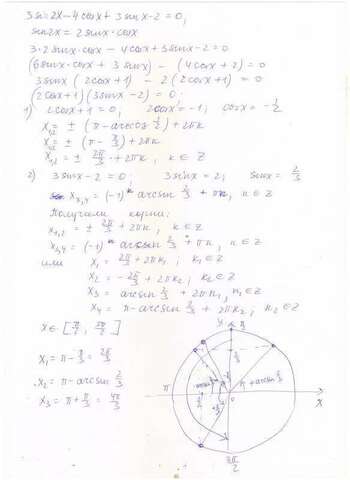 3sin2x - 4cosx + 3sinx - 2 = 0;
sin2x = 2sinx·cosx
3·2sinx·cosx - 4cosx + 3sinx - 2 = 0
(6sinx·cosx + 3sinx) - (4cosx + 2) = 0
3sinx (2cosx + 1) - 2(2cosx + 1) = 0
(2cosx + 1)(3sinx - 2) = 0;
1) 2cosx + 1 = 0; 2cosx = -1; cosx = -1/2
x1,2 = ± (π - arccos 1/2) + 2πk
x1,2 = ± (π - π/3) + 2πk
x1,2 = ± 2π/3 + 2πk, k ∈ Z
2) 3sinx - 2 = 0; 3sinx = 2; sinx = 2/3
x3,4 = (-1)^n arcsin 2/3 + πn, n ∈ Z
Получили корни:
x1,2 = ± 2π/3 + 2πk, k ∈ Z
x3,4 = (-1)^n arcsin 2/3 + πn, n ∈ Z
или x1 = 2π/3 + 2πk1; k1 ∈ Z
x2 = -2π/3 + 2πk2; k2 ∈ Z
x3 = arcsin 2/3 + 2πn1, n1 ∈ Z
x4 = π - arcsin 2/3 + 2πn2; n2 ∈ Z
x ∈ [π/2; 3π/2]
x1 = π - π/3 = 2π/3
x2 = π - arcsin 2/3
x3 = π + π/3 = 4π/3
y
π
0
arcsin 2/3
x
3π/2